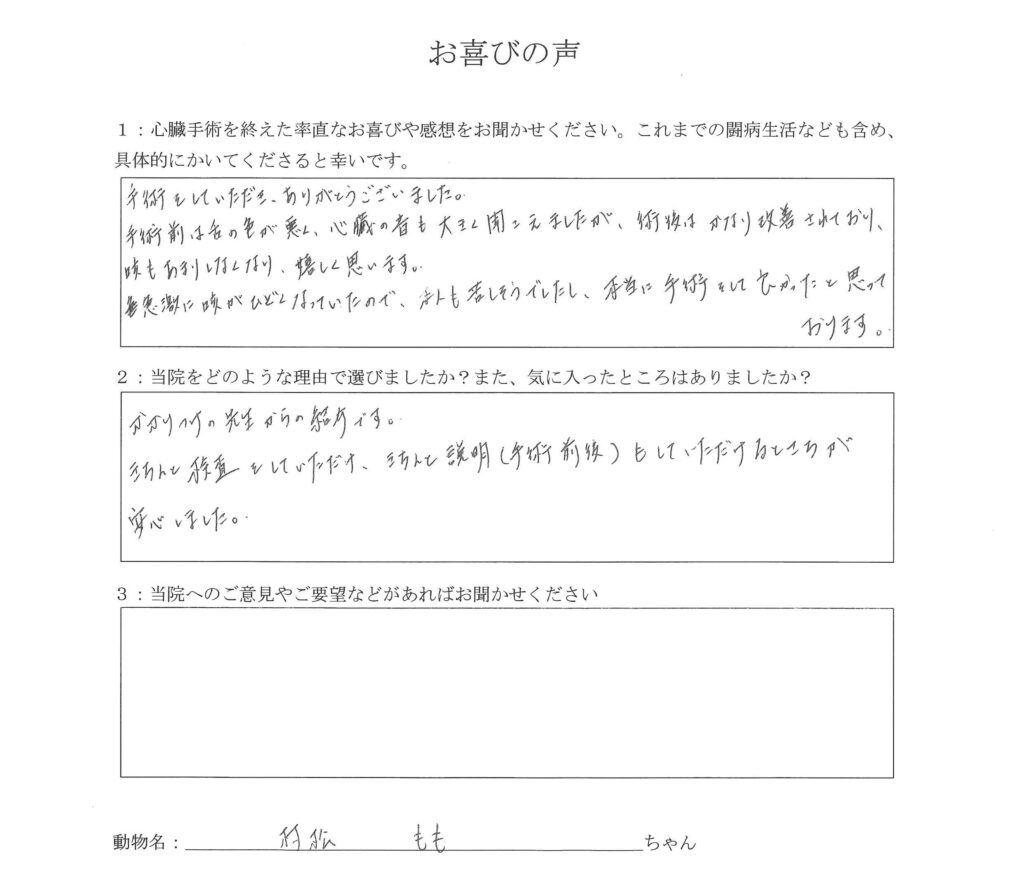 お喜びの声
１：心臓手術を終えた率直なお喜びや感想をお聞かせください。これまでの闘病生活なども含め、
具体的にかいてくださると幸いです。
手術をしていただき、ありがとうございました。
手術前は舌の色が悪く、心臓の音も大きく聞こえましたが、術後はかなり改善されており、
咳もあまりしなくなり、嬉しく思います。
急激に咳がひどくなっていたので、本人も苦しそうでしたし、本当に手術をして良かったと思って
おります。
２：当院をどのような理由で選びましたか？また、気に入ったところはありましたか？
かかりつけの先生からの紹介です。
きちんと検査をしていただけ、きちんと説明（手術前後）もしていただけるところが
安心しました。
３：当院へのご意見やご要望などがあればお聞かせください
動物名：村松 もも ちゃん